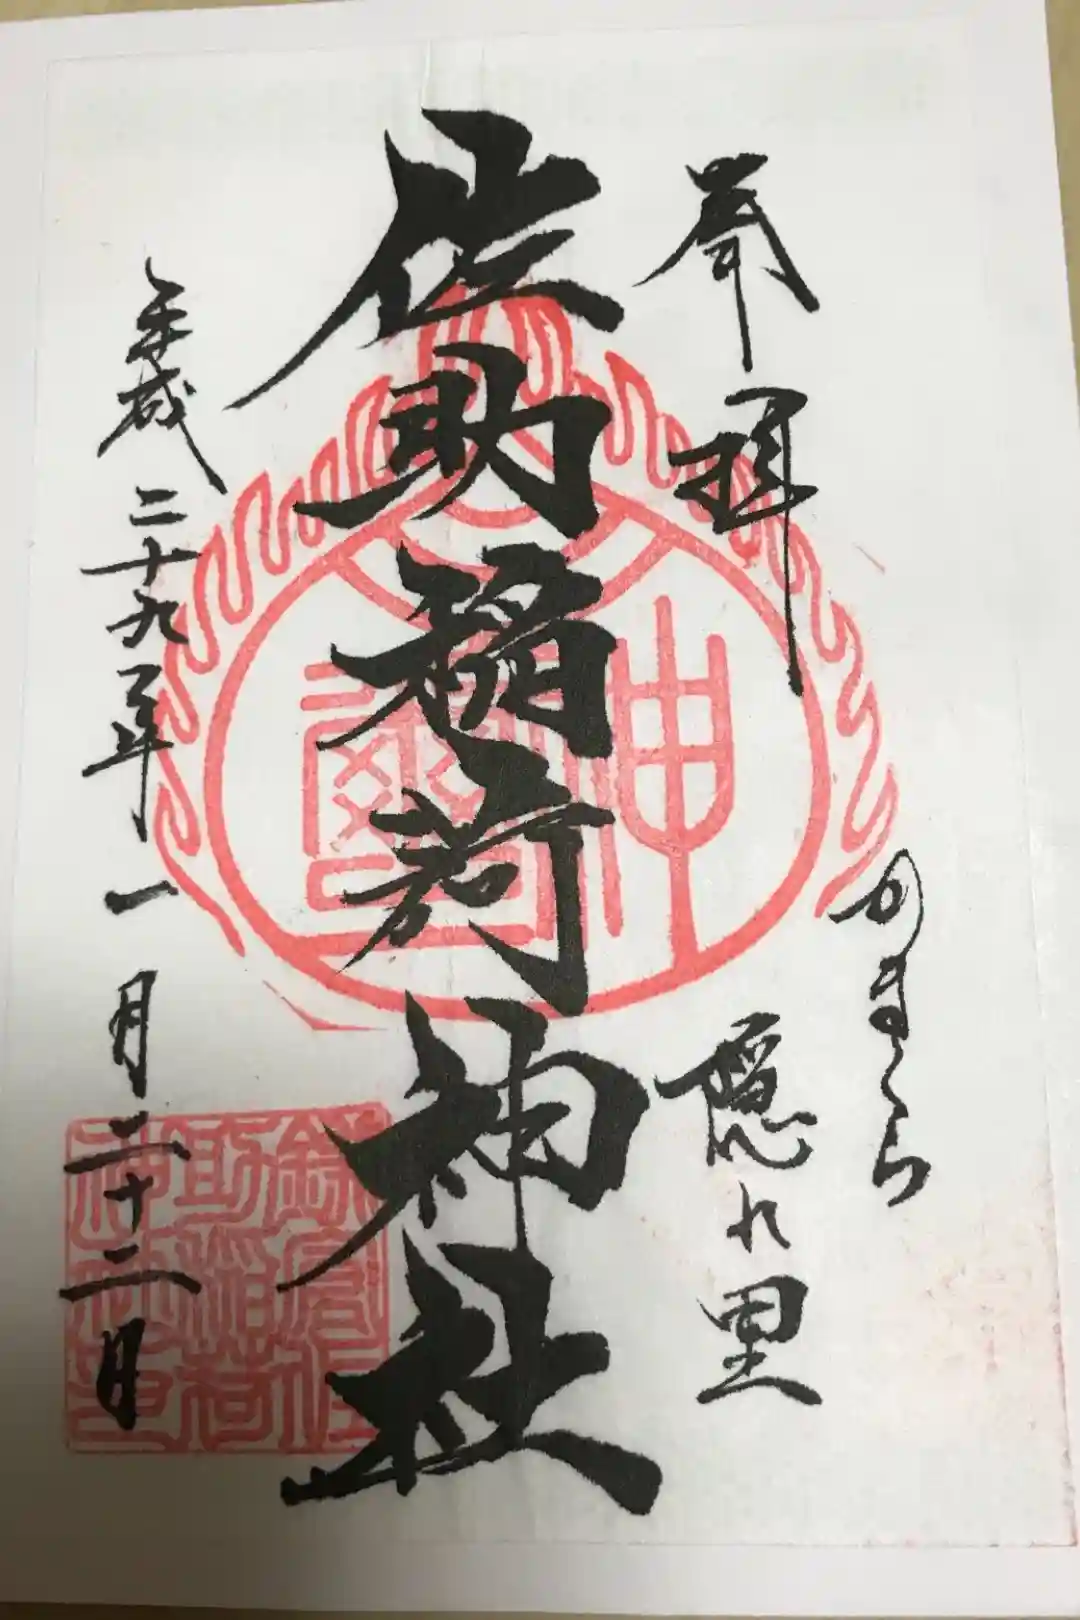 かまくら
奉拝
隠れ里
佐助稲荷神社
平成二十九年一月二十二日
神
鎌倉佐
助稲荷
神社